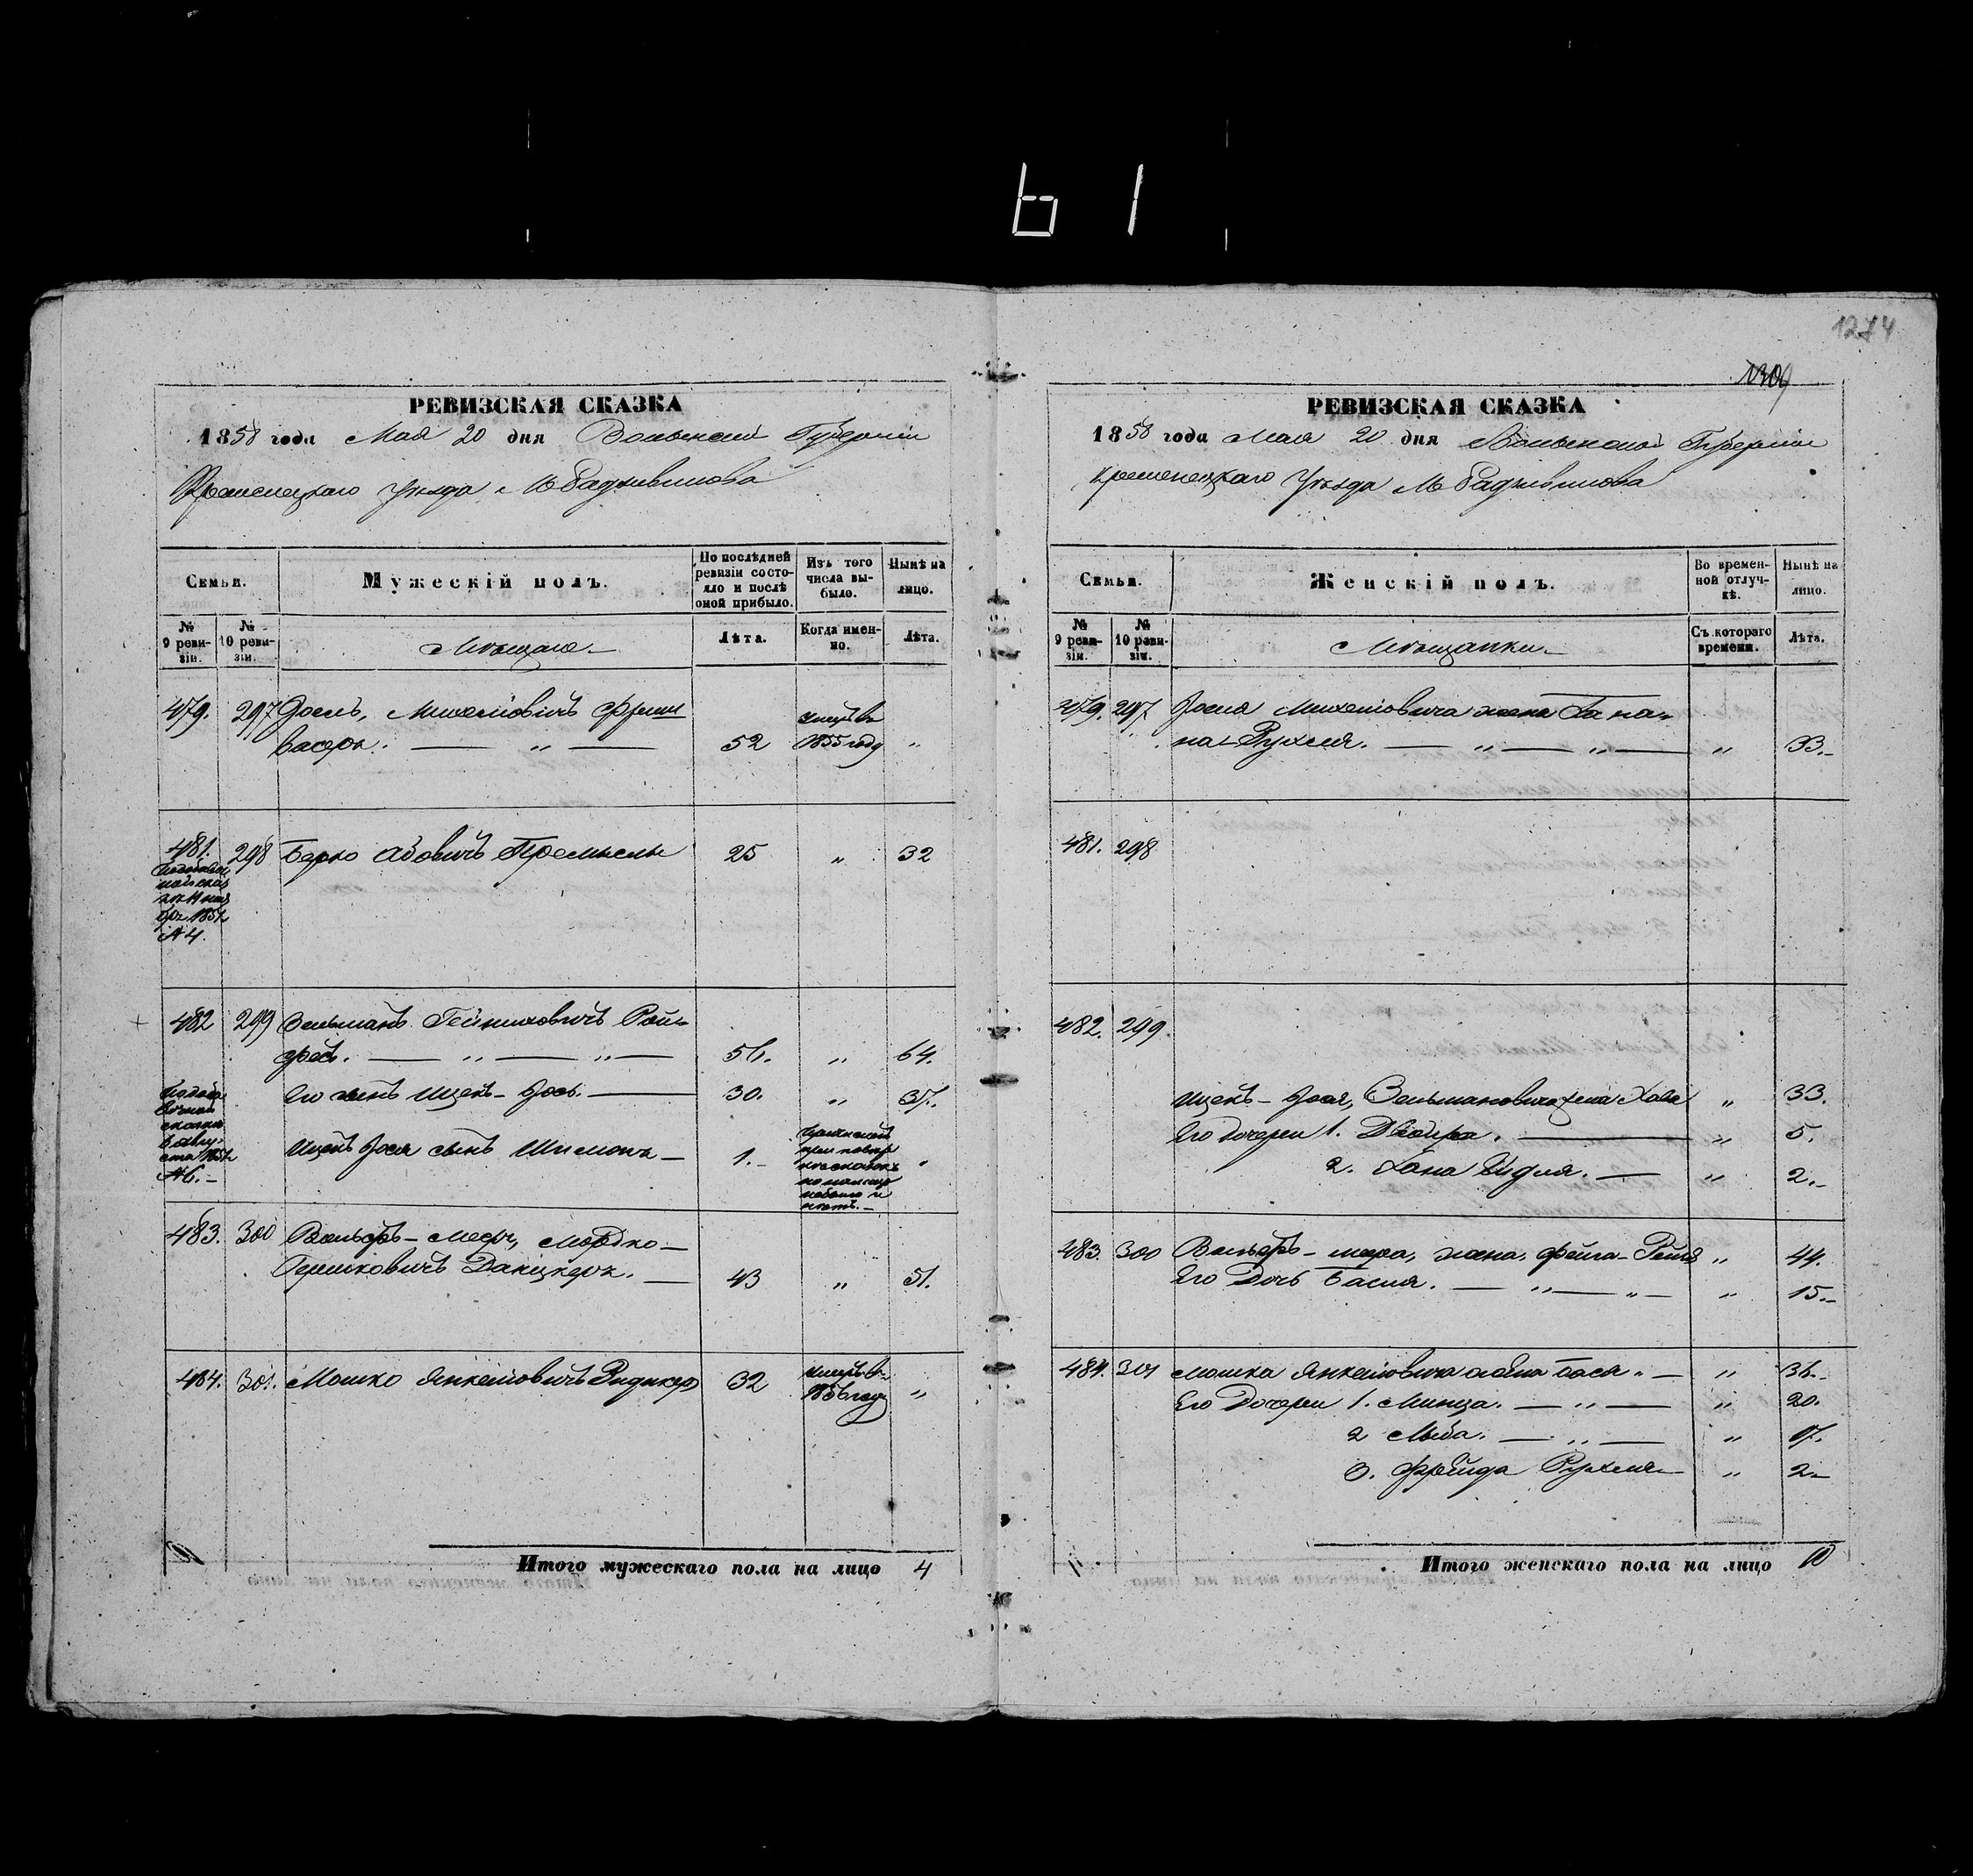 61
1274
1309
РЕВИЗСКАЯ СКАЗКА
1858 года Мая 20 дня Волынской Губерніи
Кременецкаго Уѣзда М Радзивилова
Семьи.
Мужескій полъ.
По послѣдней ревизіи состояло и послѣ оной прибыло.
Изъ того числа выбыло.
Нынѣ на лицо.
№ 9 ревизіи.
№ 10 ревизіи.
Мѣщане.
Лѣта.
Когда именно.
Лѣта.
479. 297 Іосль, Михелiовичъ Фриш умеръ в
васеръ. — „ — 52 1855 году „
481. 298 Берко Абовичъ Премыслъ 25 „ 32
№ 4.
482 299 Зельманъ Гейниховичъ Рой-
фев. — „ — „ — 56. „ 64.
Его сынъ Ицекъ - Іось. — 30. „ 37.
Ицекъ Іося сынъ Шимонъ — 1.-
№ 6.-
483. 300 Вольфъ - Меер, Мордко -
Гершковичъ Данцкеръ. — 43 „ 51.
484. 301. Мошко Янкелiовичъ Ридикеръ 32 умеръ в 1856 году „
Итого мужескаго пола на лицо 4
РЕВИЗСКАЯ СКАЗКА
1858 года Мая 20 дня Волынской Губерніи
Кременецкаго Уѣзда М Радзивилова
Семьи.
Женскій полъ.
Во временной отлучкѣ.
Нынѣ на лицо.
№ 9 ревизіи.
№ 10 ревизіи.
Мѣщанки.
Съ котораго времени.
Лѣта.
479. 297. Іосля Михелiовича жена Ха на-
на - Рухля. — „ — „ — „ 33.-
481. 298
482. 299.
Ицекъ - Іося, Зельмановича жена Хава „ 33.
Его дочери 1. Двойра. — „ 5.
2. Хана Гидля. — „ 2.-
483. 300 Вольфъ - меера, жена, Фейга - Рейзя „ 44.
Его Дочь Бася. — „ — „ — „ 15.-
484. 301 Мошка Янкелiовича вдова Бася „ — „ 36.-
Его Дочери 1. Минца. — „ — „ 20.
2 Люба. — „ — „ 17.
3. Фрейда Рухля — „ 2.-
Итого женскаго пола на лицо 10